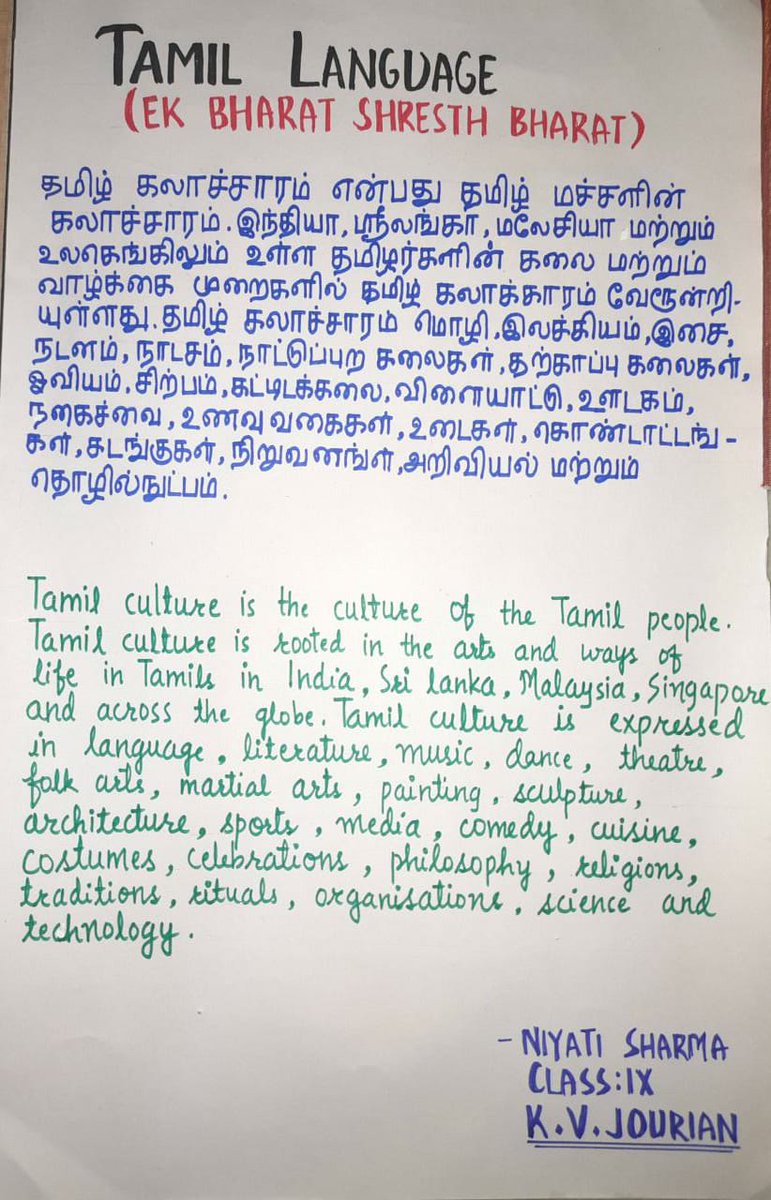 TAMIL LANGUAGE
(EK BHARAT SHRESTH BHARAT)
தமிழ் கலாச்சாரம் என்பது தமிழ் மச்சளின்
கலாச்சாரம். இந்தியா, ஸ்ரீலங்கா, மலேசியா மற்றும்
உலகெங்கிலும் உள்ள தமிழர்களின் கலை மற்றும்
வாழ்க்கை முறைகளில் தமிழ் கலாக்காரம் வேரூன்றி-
யுள்ளது. தமிழ் கலாச்சாரம் மொழி, இலக்கியம், இசை,
நடனம், நாடசம், நாட்டுப்புற கலைகள், தற்காப்பு கலைகள்,
ஓவியம், சிற்பம், கட்டிடக்கலை, விளையாட்டு, ஊடகம்,
நகைச்வை, உணவு வகைகள், உடைகள், கொண்டாட்டங்-
கள், சடங்குகள், நிறுவனங்ள், அறிவியல் மற்றும்
தொழில்நுட்பம்.
Tamil culture is the culture of the Tamil people.
Tamil culture is rooted in the arts and ways of
life in Tamils in India, Sri lanka, Malaysia, Singapore
and across the globe. Tamil culture is expressed
in language, literature, music, dance, theatre,
folk arts, martial arts, painting, sculpture,
architecture, sports, media, comedy, cuisine,
costumes, celebrations, philosophy, religions,
traditions, rituals, organisations, science and
technology.
- NIYATI SHARMA
CLASS: IX
K.V. JOURIAN